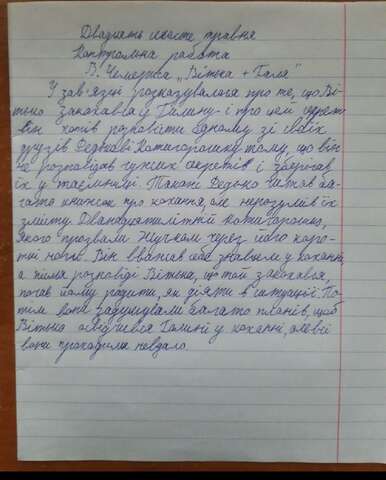 Двадцять шосте травня
Контрольна работа
В. Чемерис "Вітька + Галя"
У зав'язці розказувалося про те, що Ві-
тько закохався у Галину і про цей секрет
він хотів розповісти одному зі своїх
друзів Федькові Котигорошку тому, що він
не розповідав чужих секретів і зберігав
їх у таємниці. Також Федько читав ба-
гато книжок про кохання, але не розумів їх
змісту. Дванадцятилітній Котигорошко,
якого прозвали Жучком через його коро-
ткі ноги. Він вважав себе знавцем у коханні,
а після розповіді Вітька, що той закохався,
почав йому радити, як діяти в ситуації. По-
тім вони задумували багато планів, щоб
Вітько освідчився Галині у коханні, але всі
вони проходили невдало.